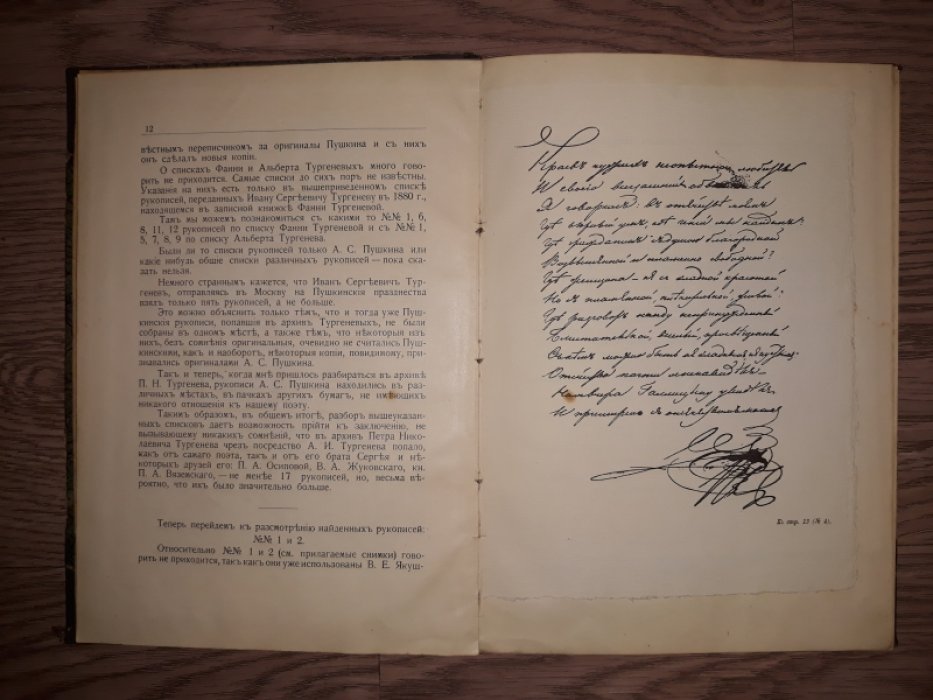 12
вѣстнымъ переписчикомъ за оригиналы Пушкина и съ нихъ
онъ сдѣлалъ новыя копіи.
О спискахъ Фанни и Альберта Тургеневыхъ много гово-
рить не приходится. Самые списки до сихъ поръ не извѣстны.
Указанія на нихъ есть только въ вышеприведенномъ спискѣ
рукописей, переданныхъ Ивану Сергѣевичу Тургеневу въ 1880 г.,
находящемся въ записной книжкѣ Фанни Тургеневой.
Тамъ мы можемъ познакомиться съ какими то №№ 1, 6,
8, 11, 12 рукописей по списку Фанни Тургеневой и съ №№ 1,
5, 7, 8, 9 по списку Альберта Тургенева.
Были ли то списки рукописей только А. С. Пушкина или
какіе нибудь общіе списки различныхъ рукописей — пока ска-
зать нельзя.
Немного страннымъ кажется, что Иванъ Сергѣевичъ Тур-
геневъ, отправляясь въ Москву на Пушкинскія празднества
взялъ только пять рукописей, а не больше.
Это можно объяснить только тѣмъ, что и тогда уже Пуш-
кинскія рукописи, попавшія въ архивъ Тургеневыхъ, не были
собраны въ одномъ мѣстѣ, а также тѣмъ, что нѣкоторыя изъ
нихъ, безъ сомнѣнія оригинальныя, очевидно не считались Пуш-
кинскими, какъ и наоборотъ, нѣкоторыя копіи, повидимому, при-
знавались оригиналами А. С. Пушкина.
Такъ и теперь, когда мнѣ пришлось разбираться въ архивѣ
П. Н. Тургенева, рукописи А. С. Пушкина находились въ раз-
личныхъ мѣстахъ, въ пачкахъ другихъ бумагъ, не имѣющихъ
никакого отношенія къ нашему поэту.
Такимъ образомъ, въ общемъ итогѣ, разборъ вышеуказан-
ныхъ списковъ даетъ возможность прійти къ заключенію, не
вызывающему никакихъ сомнѣній, что въ архивъ Петра Нико-
лаевича Тургенева чрезъ посредство А. И. Тургенева попало,
какъ отъ самаго поэта, такъ и отъ его брата Сергѣя и нѣ-
которыхъ друзей его: П. А. Осиповой, В. А. Жуковскаго, кн.
П. А. Вяземскаго, — не менѣе 17 рукописей, но, весьма вѣ-
роятно, что ихъ было значительно больше.
Теперь перейдемъ къ разсмотрѣнію найденныхъ рукописей:
№№ 1 и 2.
Относительно №№ 1 и 2 (см. прилагаемые снимки) гово-
рить не приходится, такъ какъ они уже использованы В. Е. Якуш-
Краевъ чужихъ неопытной любитель
И своего всегдашній
Я говорилъ: въ отечествѣ моемъ
Гдѣ вѣрный умъ, гдѣ геній мы найдемъ?
Гдѣ гражданинъ съ душою благородной
Возвышенной и пламенно свободной?
Гдѣ женщина — не съ хладной красотой
Но съ пламенной, плѣнительной, живой?
Гдѣ разговоръ найду непринужденной
Блистательной, веселой, просвѣщенной
Съ кѣмъ можно быть не хладнымъ не пустымъ
Отечество почти
Голицыну увидѣлъ
И примиренъ съ отечествомъ моимъ
Къ стр. 13 (№ 4).